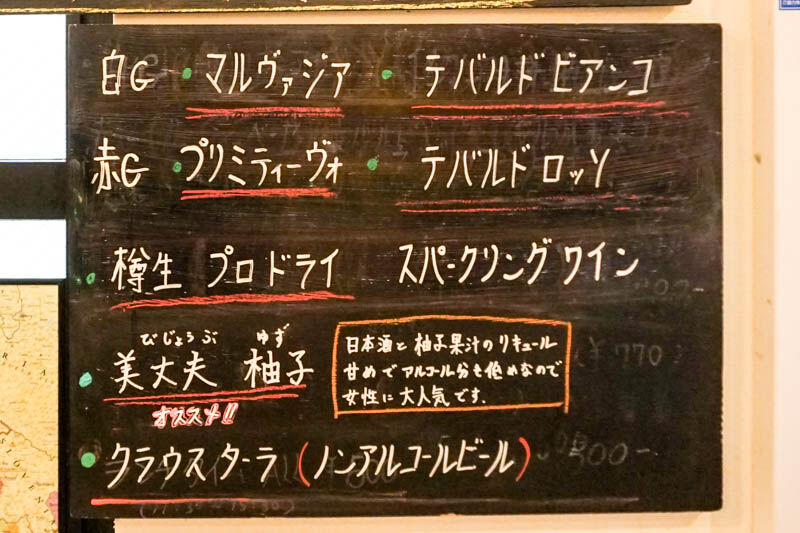 白G ・マルヴァジア ・テバルドビアンコ
赤G ・プリミティーヴォ ・テバルドロッソ
・樽生 プロドライ スパークリングワイン
びじょうぶ ゆず
・美丈夫 柚子
オススメ!!
日本酒と柚子果汁のリキュール
甘めでアルコール分も低めなので
女性に大人気です.
・クラウスターラ(ノンアルコールビール)